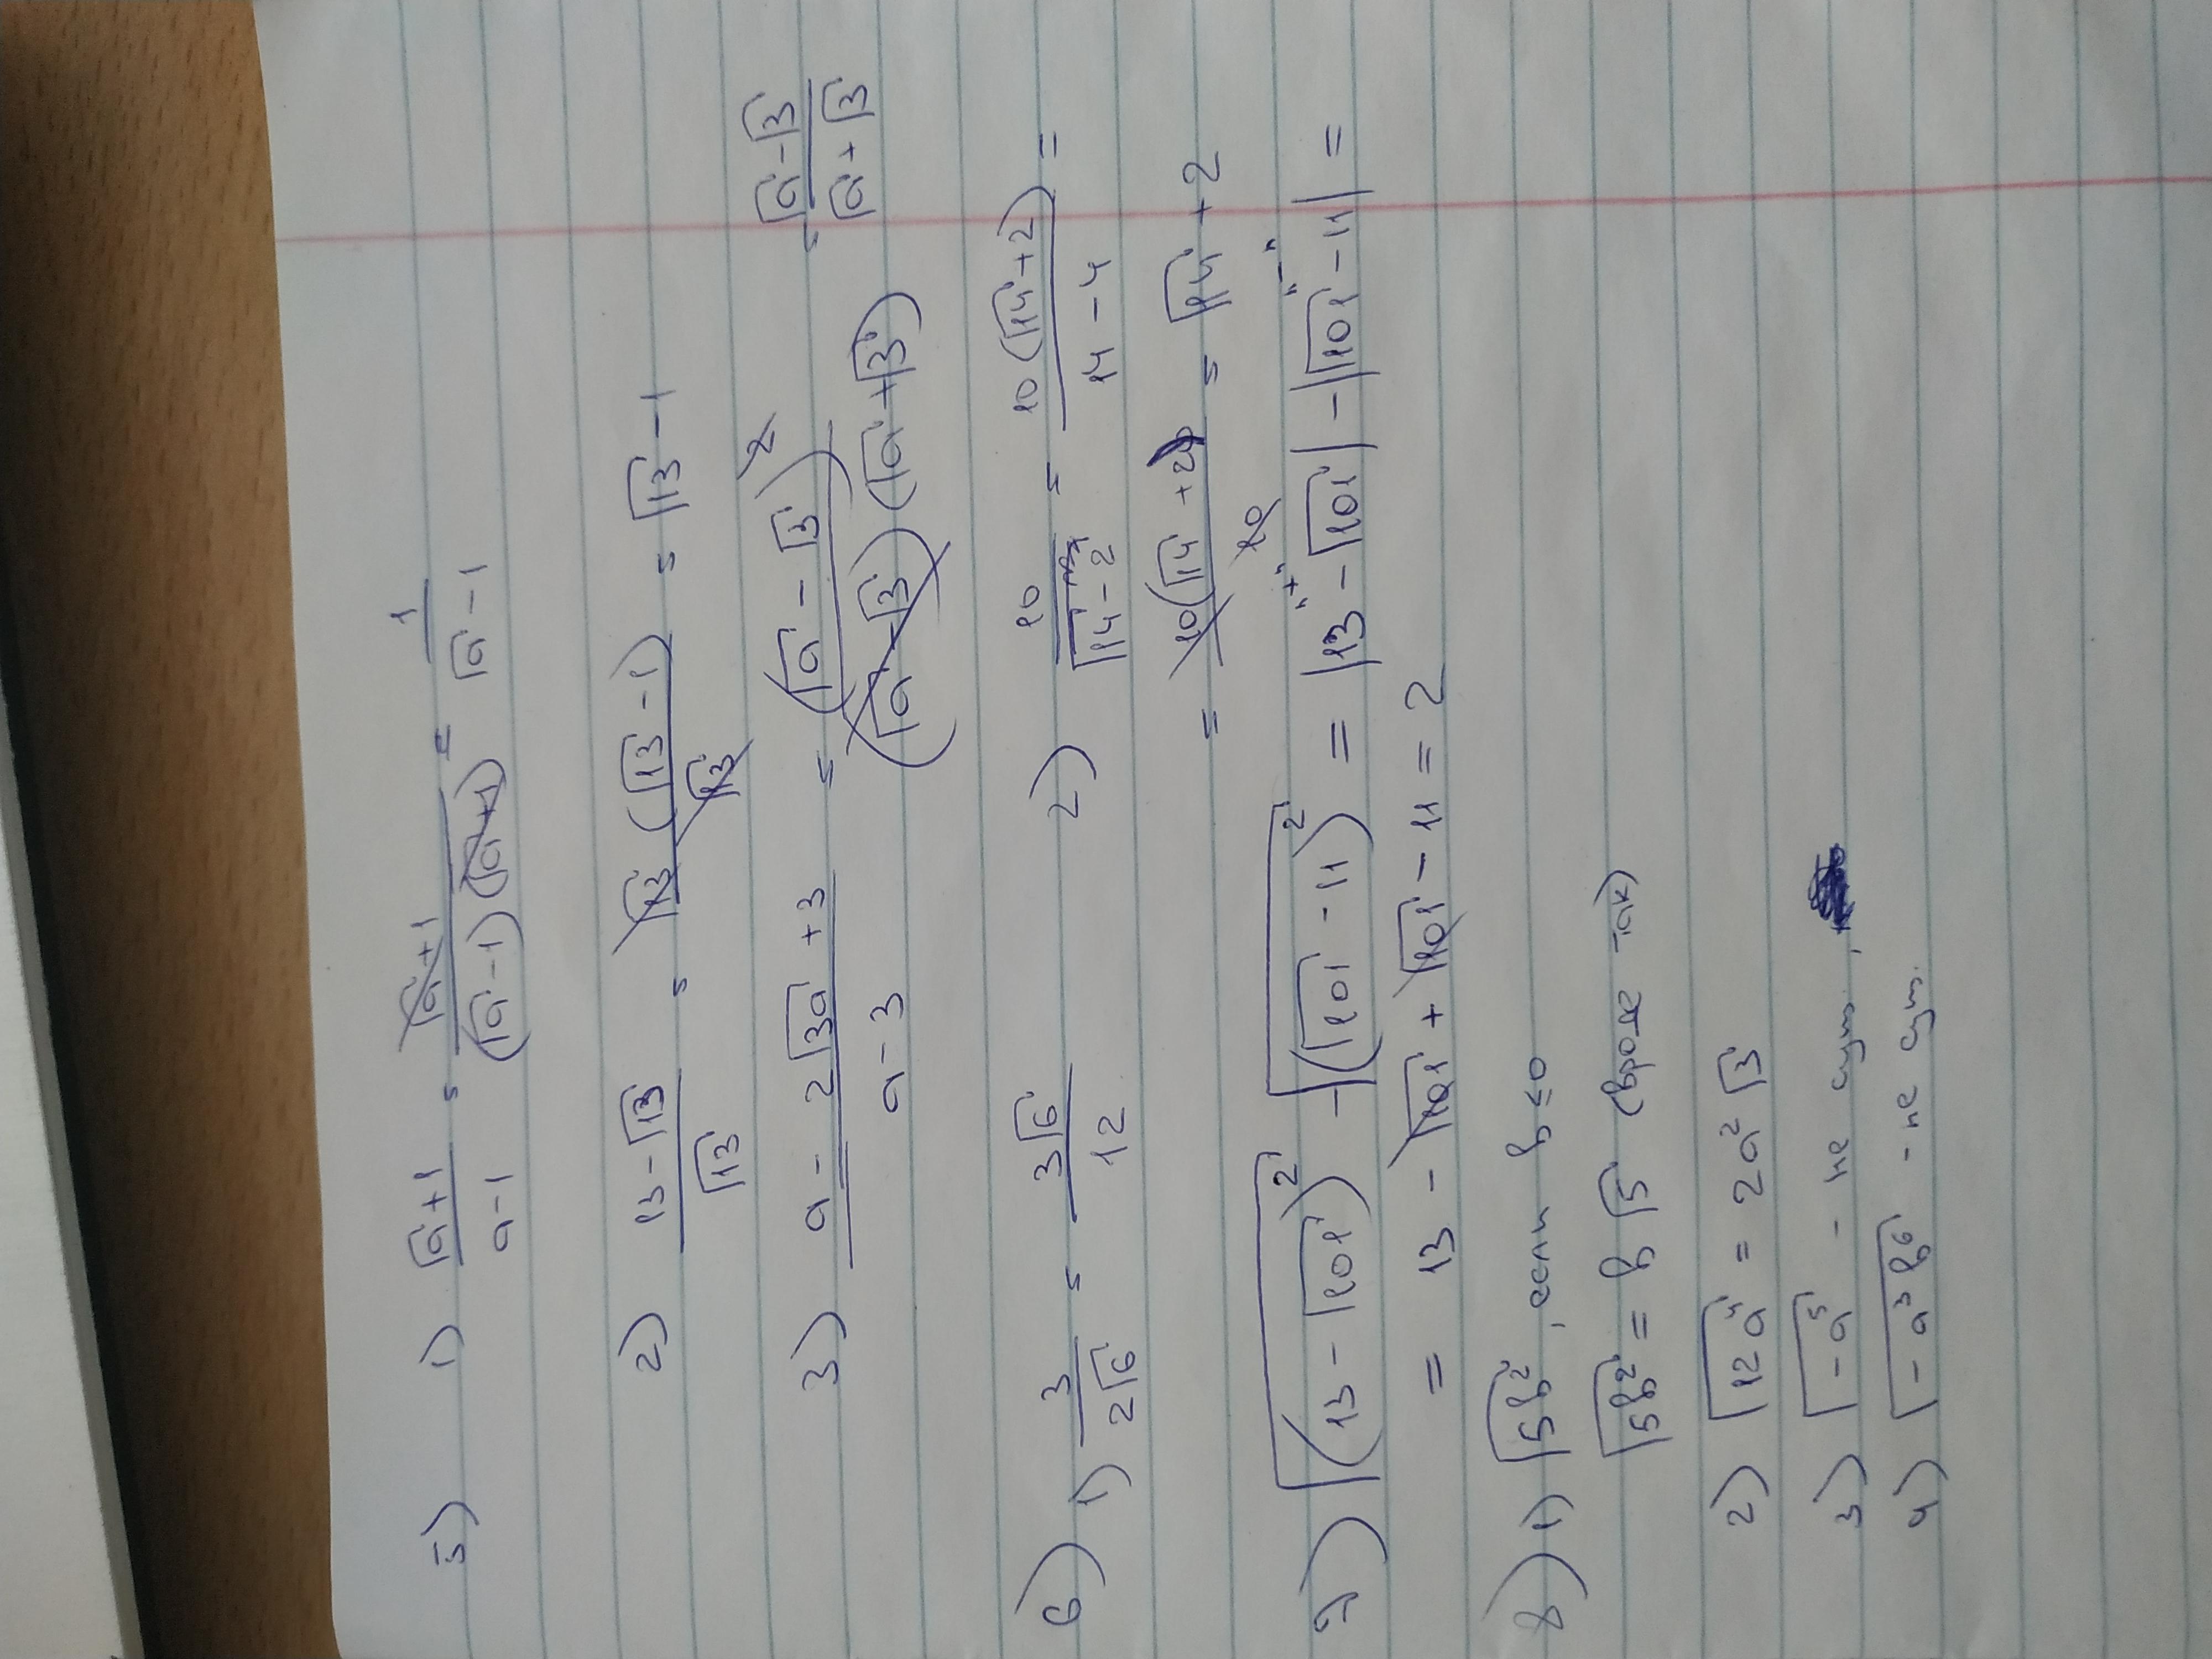 5) 1) (√a+1)/(a-1) = (√a+1)/((√a-1)(√a+1)) = 1/(√a-1)
2) (13-√13)/√13 = √13(√13-1)/√13 = √13-1
3) (a-2√3a+3)/(a-3) = (√a-√3)²/((√a-√3)(√a+√3)) = (√a-√3)/(√a+√3)
6) 1) 3/(2√6) = 3√6/12 2) 10/(√14-2) = 10(√14+2)/(14-4) =
= 10(√14+2)/10 = √14+2
7) √((13-√101)²) - √((√101-11)²) = |13-√101| "+" - |√101-11| "-" =
= 13-√101+√101-11=2
8) 1) √5b², если b≤0
√5b² = b√5 (вроде так)
2) √12a⁴ = 2a²√3
3) √-a⁵ - не сущ.
4) √-a³b⁶ - не сущ.